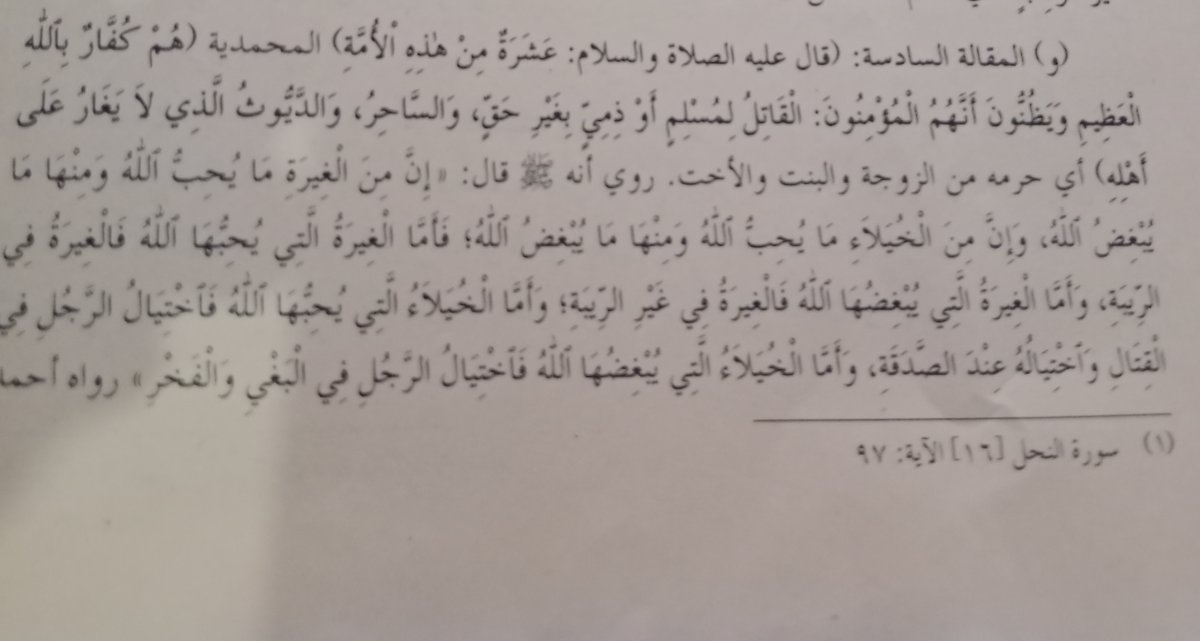 (و) المقالة السادسة: (قال عليه الصلاة والسلام: عَشَرَةٌ مِنْ هٰذِهِ الْأُمَّةِ) المحمدية (هُمْ كُفَّارٌ بِٱللّٰهِ
الْعَظِيمِ وَيَظُنُّونَ أَنَّهُمُ الْمُؤْمِنُونَ: الْقَاتِلُ لِمُسْلِمٍ أَوْ ذِمِيٍّ بِغَيْرِ حَقٍّ، وَالسَّاحِرُ، وَالدَّيُّوثُ الَّذِي لاَ يَغَارُ عَلَى
أَهْلِهِ) أي حرمه من الزوجة والبنت والأخت. روي أنه ﷺ قال: «إِنَّ مِنَ الْغِيرَةِ مَا يُحِبُّ ٱللّٰهُ وَمِنْهَا مَا
يُبْغِضُ ٱللّٰهُ، وَإِنَّ مِنَ الْخُيَلاَءِ مَا يُحِبُّ ٱللّٰهُ وَمِنْهَا مَا يُبْغِضُ ٱللّٰهُ؛ فَأَمَّا الْغِيرَةُ الَّتِي يُحِبُّهَا ٱللّٰهُ فَالْغِيرَةُ فِي
الرِّيبَةِ، وَأَمَّا الْغِيرَةُ الَّتِي يُبْغِضُهَا ٱللّٰهُ فَالْغِيرَةُ فِي غَيْرِ الرِّيبَةِ؛ وَأَمَّا الْخُيَلاَءُ الَّتِي يُحِبُّهَا ٱللّٰهُ فَٱخْتِيَالُ الرَّجُلِ فِي
الْقِتَالِ وَٱخْتِيَالُهُ عِنْدَ الصَّدَقَةِ، وَأَمَّا الْخُيَلاَءُ الَّتِي يُبْغِضُهَا ٱللّٰهُ فَٱخْتِيَالُ الرَّجُلِ فِي الْبَغْيِ وَالْفَخْرِ» رواه أحمد
(١) سورة النحل [١٦] الآية: ٩٧